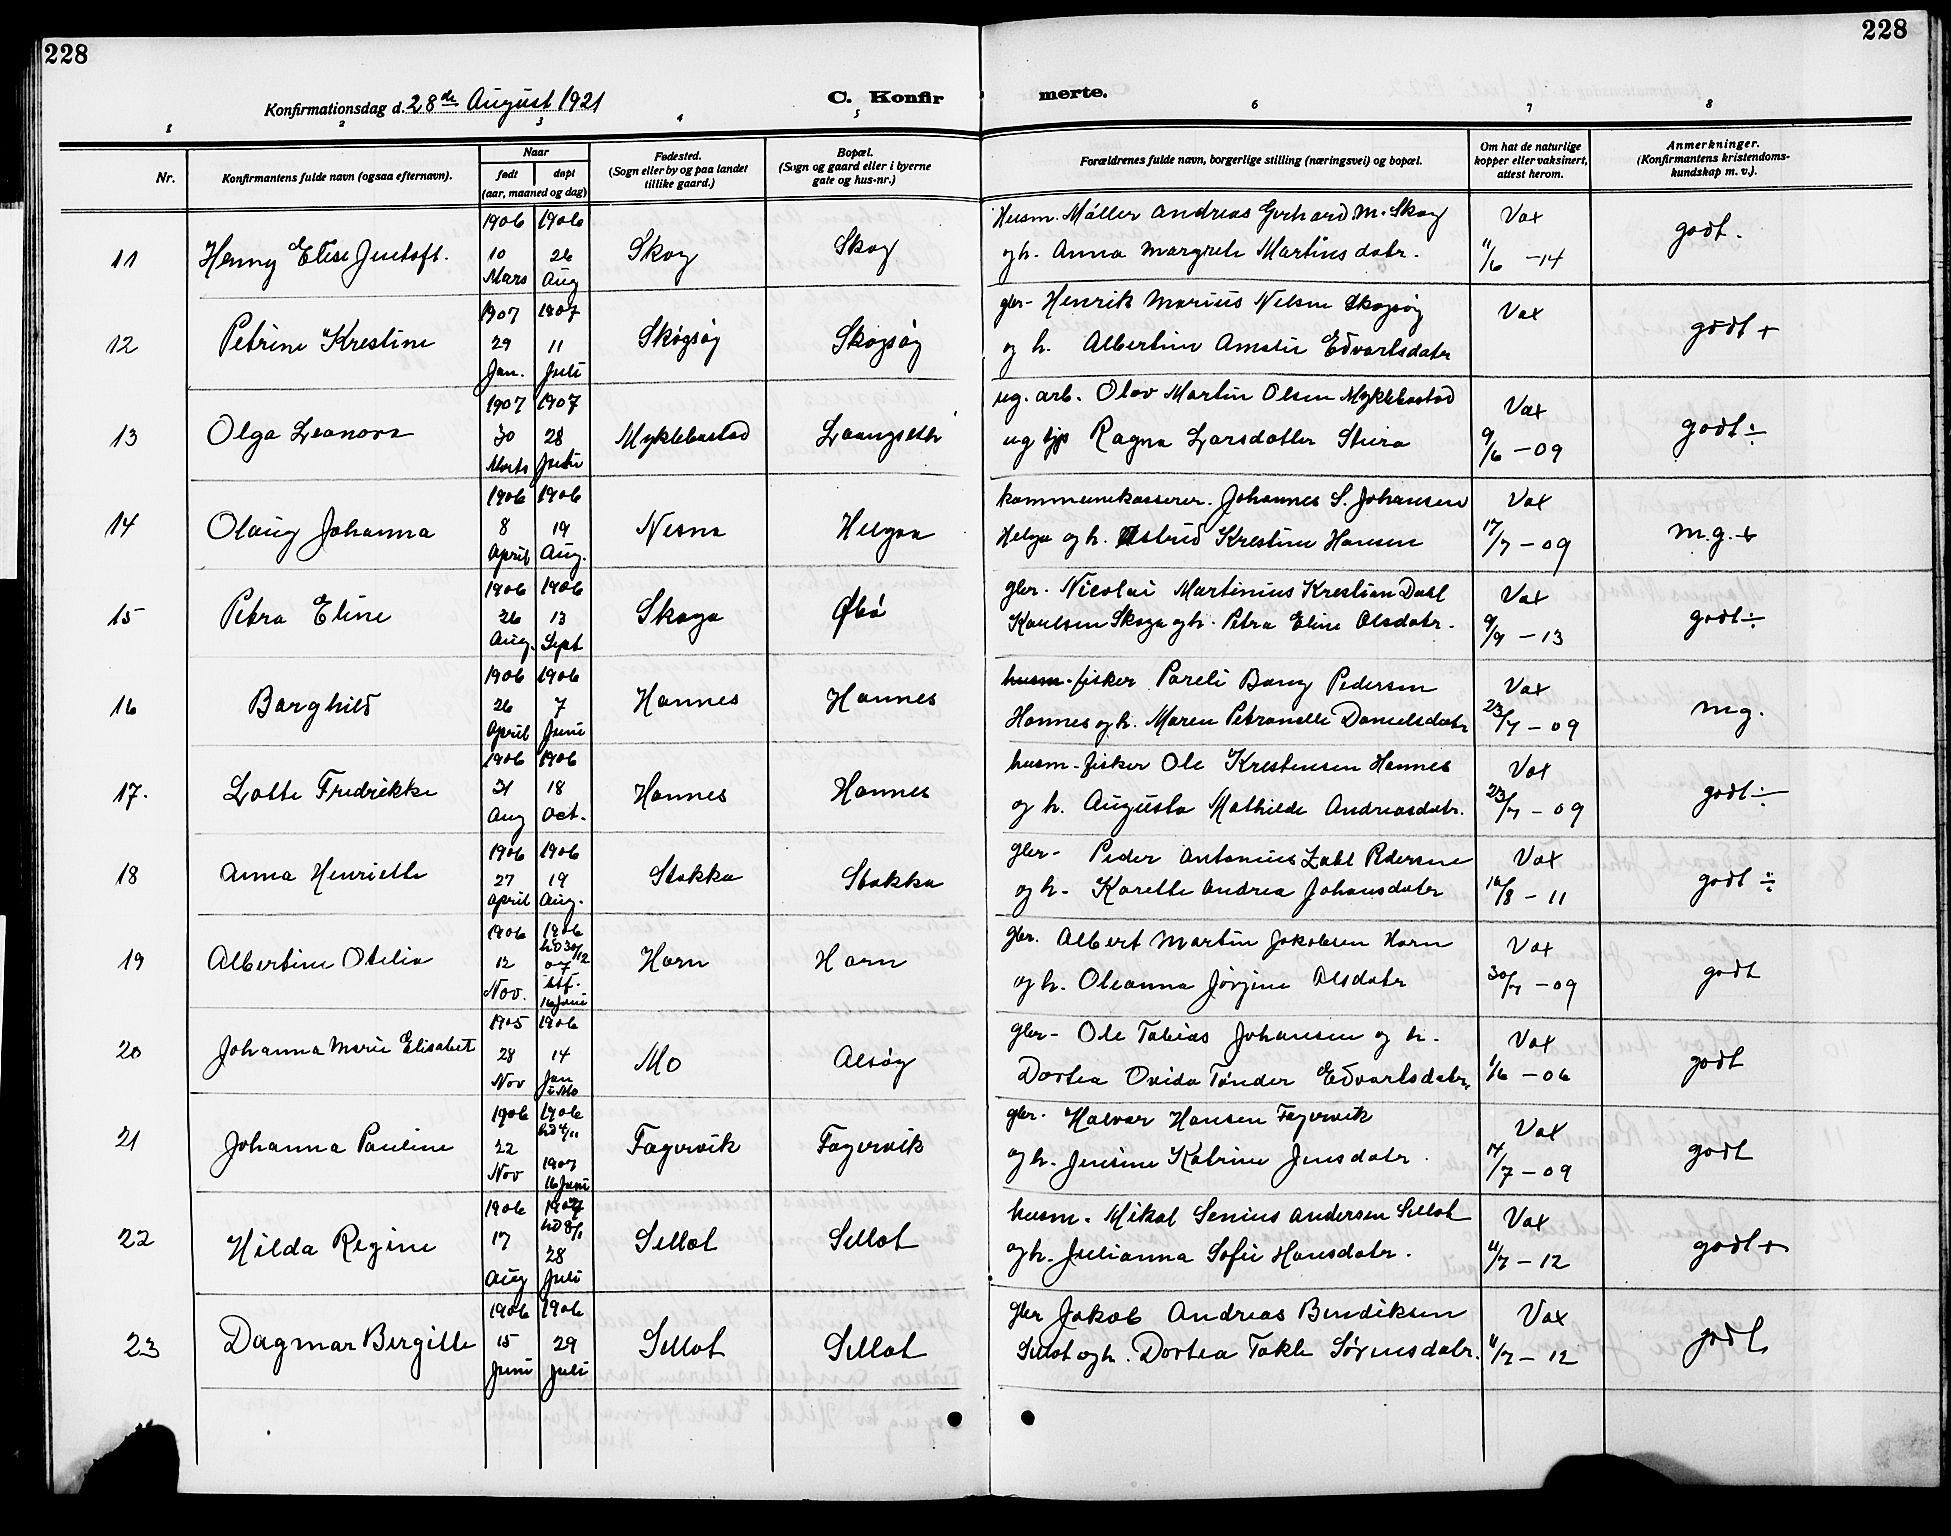 228
228
Konfirmationsdag d. 28de August 1921
C. Konfir merte.
1 2 3 4 5 6 7 8
Nr.
Konfirmantens fulde navn (ogsaa efternavn).
Naar
født
døpt
(aar, maaned og dag)
Fødested.
(Sogn eller by og paa landet
tillike gaard.)
Bopæl.
(Sogn og gaard eller i byerne
gate og hus-nr.)
Forældrenes fulde navn, borgerlige stilling (næringsvei) og bopæl.
Om hat de naturlige
kopper eller vaksinert,
attest herom.
Anmerkninger.
(Konfirmantens kristendoms-
kundskap m. v.).
1906 1906 Husm. Møller Andreas Gerhard M. Skog Vax
11 Henny Elise Justoft. 10 26 Skog Skog ogh. Anna Margrete Martinsdatr. 11/6 - 14 godt.
Mars Aug
1907 1907 gbr- Henrik Marius Nelsen Skogsøy Vax
12 Petrine Krestine 29 11 Skogsøy Skogsøy og h. Albertine Amalie Edvartsdatr godt +
Jan. Juli
1907 1907 ug. arb. Olav Martin Olsen Myklebostad Vax
13 Olga Leonora 30 28 Myklebustad Laangseth ug tjp Ragna Larsdatter Stura 9/6 - 09 godt ÷
Marts Juli
1906 1906 kommunekasserer. Johannes S. Johansen Vax
14 Olaug Johanna 8 19 Nesna Helgaa Helga ogh. Astrid Krestine Hansen 17/7 - 09 m.g. +
April Aug.
1906 1906 gbr. Nicolai Martinius Krestian Dahl Vax
15 Petra Eline 26 13 Skaga Øbø Karlsen Skaga ogh. Petra Eline Olsdatr. 9/9 - 13 godt ÷
Aug. Sept
1906 1906 husm-fisker Pareli Bang Pedersen Vax
16 Borghild 26 7 Hannes Hannes Hannes ogh. Maren Petranelle Danielsdatr 23/7 - 09 mg.
April Juni
1906 1906 husm-fisker Ole Krestensen Hannes Vax
17. Lotte Fredrikke 31 18 Hannes Hannes og h. Augusta Mathilde Andreasdatr. 23/7 - 09 godt ÷
Aug Oct.
1906 1906 gbr- Peder Antonius Zahl Pedersen Vax
18 Anna Henriette 27 19 Stokka Stokka og h. Karelle Andrea Johansdatr 16/8 - 11 godt ÷
April Aug.
1906 1906 gbr. Albert Martin Jakobsen Horn Vax
hd 30/12
19 Albertine Otelia 12 07 Horn Horn og h. Oleanna Jørgine Olsdatr 30/7 - 09 godt
Nov. stf.
16 Juni
1905 1906 gbr- Ole Tobias Johansen og h. Vax
20 Johanna Marie Elisabet 28 14 Mo Alsøy Dortea Ovida Tønder Edvartsdatr. 1/6 - 06 godt
Nov Jan
i Mo
1906 1906 gbr. Halvor Hansen Fagervik Vax
hd 4/11
21 Johanna Pauline 22 Fagervik Fagervik og h. Jensine Katrine Jensdatr. 14/7 - 09 godt
Nov 1907
16 Juni
1906 1907 husm. Mikal Senius Andersen Sellot Vax
hd 8/1
22 Hilda Regine 17 28 Sellot Sellot ogh. Julianna Sofie Hansdatr. 11/7 - 12 godt +
Aug Juli
1906 1906 gbr Jakob Andreas Bendiksen Vax
23 Dagmar Bergitte 15 29 Sellot Sellot Sellot ogh. Dortea Tokle Sørensdatr. 11/7 - 12 godt
Juni Juli